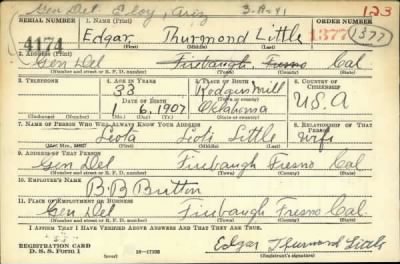 Gen Del Eloy, Ariz 3-19-41 123
SERIAL NUMBER 1. NAME (Print) ORDER NUMBER
4174 Edgar, Thurmond Little 1377 1377
(First) (Middle) (Last)
2. ADDRESS (Print)
Gen Del Firebaugh, Fresno Cal
(Number and street or R. F. D. number) (Town) (County) (State)
3. TELEPHONE 4. AGE IN YEARS 5. PLACE OF BIRTH 6. COUNTRY OF CITIZENSHIP
33 Oklahoma U.S.A
DATE OF BIRTH
6, 1907
(Exchange) (Number) (Mo.) (Day) (Yr.) (State or country)
7. NAME OF PERSON WHO WILL ALWAYS KNOW YOUR ADDRESS 8. RELATIONSHIP OF THAT PERSON
Leota Little Wife
(Mr., Mrs., Miss) (First) (Middle) (Last)
9. ADDRESS OF THAT PERSON
Gen Del Firebaugh Fresno Cal
(Number and street or R. F. D. number) (Town) (County) (State)
10. EMPLOYER'S NAME
B.B Britton
11. PLACE OF EMPLOYMENT OR BUSINESS
Gen Del Firebaugh Fresno Cal.
(Number and street or R. F. D. number) (Town) (County) (State)
I AFFIRM THAT I HAVE VERIFIED ABOVE ANSWERS AND THAT THEY ARE TRUE.
REGISTRATION CARD
D. S. S. Form 1 16—17105 Edgar Thurmond Little
(Registrant's signature)